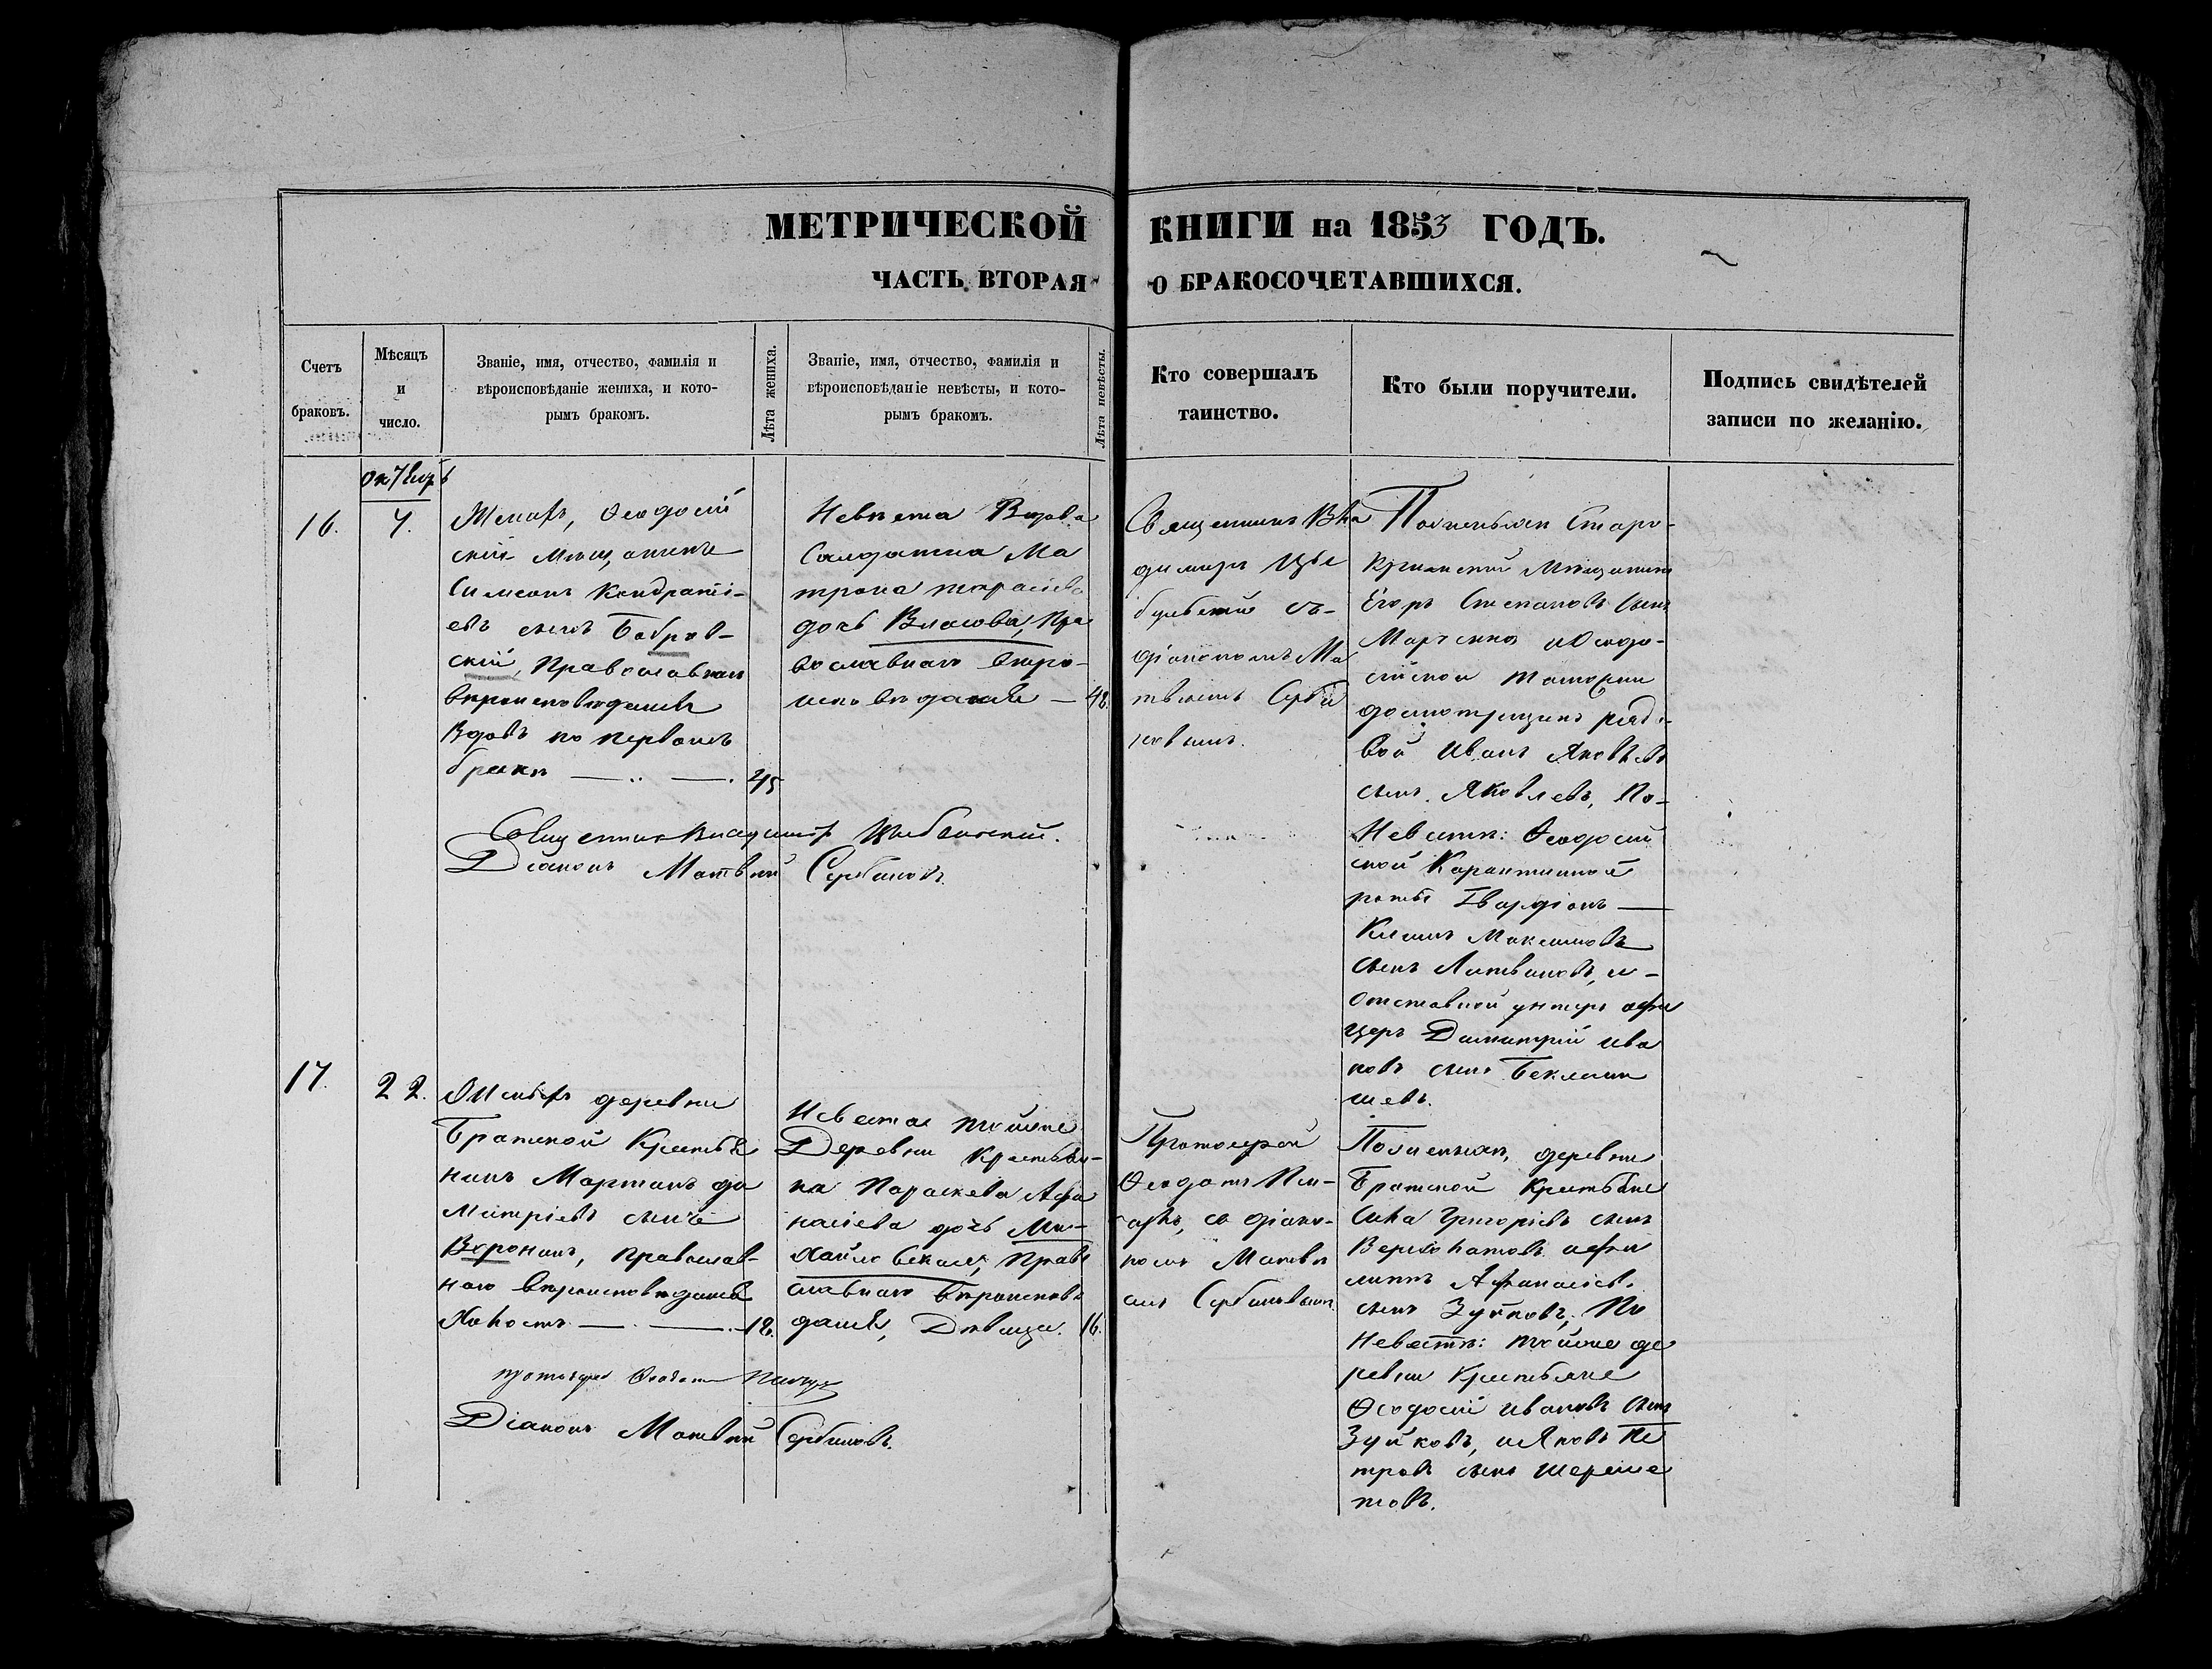 МЕТРИЧЕСКОЙ КНИГИ на 1853 ГОДЪ.
ЧАСТЬ ВТОРАЯ О БРАКОСОЧЕТАВШИХСЯ.
Счетъ
браковъ.
Мѣсяцъ
и
число.
Званіе, имя, отчество, фамилія и
вѣроисповѣданіе жениха, и кото-
рымъ бракомъ.
Лѣта жениха.
Званіе, имя, отчество, фамилія и
вѣроисповѣданіе невѣсты, и кото-
рымъ бракомъ.
Лѣта невѣсты.
Кто совершалъ
таинство.
Кто были поручители.
Подпись свидѣтелей
записи по желанію.
16.
Женихъ, Ѳеодосій
скій Мѣщанинъ
Симеонъ Кондраті-
евъ сынъ Бобров-
скій, Православнаго
вѣроисповѣданія
Вдовъ по первомъ
бракѣ
45
Невѣста Вдова
Солдатка Ма
трона
дочь Власова, Пра
вославнаго вѣро-
исповѣданія — 48.
Священникъ Вла
димиръ Цы
бульскій съ
діакономъ Ма
твѣемъ Серби
новымъ.
По женихѣ Старо-
Крымскій Мѣщанинъ
Егоръ Степановъ сынъ
Марченко и Ѳеодо-
сійской таможни
досмотрщикъ рядо-
вой Иванъ Яковлевъ
сынъ Яковлевъ, По
Невѣстѣ: Ѳеодосій
ской Карантинной
роты Гвардіонъ
Климъ Максимовъ
сынъ Литвиновъ, и
Отставной унтеръ офи
церъ Димитрій Ива
новъ сынъ Беклеми
шевъ.
Священникъ Владиміръ Цыбульскій.
Діаконъ Матвѣй Сербиновъ
17.
22.
Женихъ деревни
Братской Крестья
нинъ Мартинъ Ди
митріевъ сынъ
Воронинъ, Православ-
наго вѣроисповѣданія
Холостъ 18.
Невѣста тойже
Деревни Крестьян-
ка Параскева Афа
насіева дочь Ми-
хайловская, Право
славнаго вѣроисповѣ
данія, Дѣвица. 16.
Протоіерей
Ѳеодотъ
со діако-
номъ Матвѣ
емъ Сербиновымъ
По женихѣ, деревни
Братской Крестьяне
Григоріевъ сынъ
Афанасіевъ
сынъ Зуйковъ, По
Невѣстѣ: тойже де
ревни Крестьяне
Ѳеодосій Ивановъ сынъ
Зуйковъ, и Яковъ Пе
тровъ сынъ Шереме
товъ.
Діаконъ Матвѣй Сербиновъ